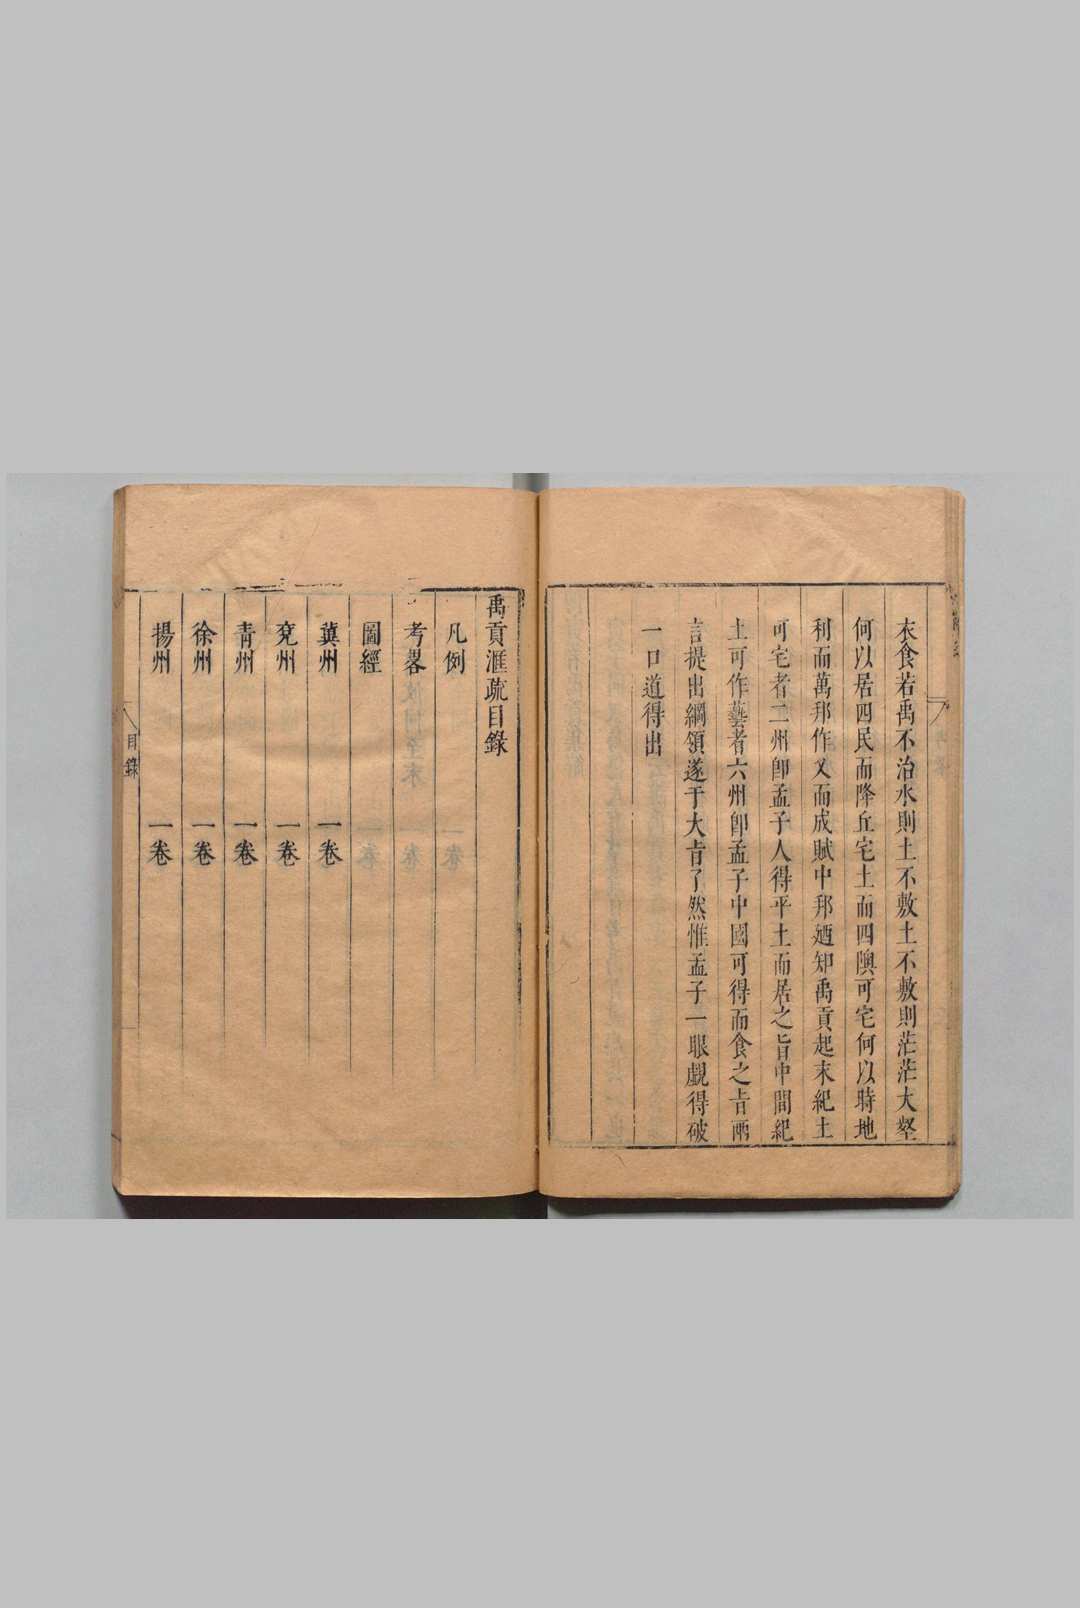 衣食若禹不治水則土不敷土不敷則茫茫大壑
何以居四民而降丘宅土而四隩可宅何以時地
利而萬邦作乂而成賦中邦廼知禹貢起末紀土
可宅者二州卽孟子人得平土而居之旨中間紀
土可作藝者六州卽孟子中國可得而食之旨兩
言提出綱領遂于大旨了然惟孟子一眼覷得破
一口道得出
禹貢滙疏目錄
凡例
考畧
圖經
冀州 一卷
兗州 一卷
青州 一卷
徐州 一卷
揚州 一卷
目錄